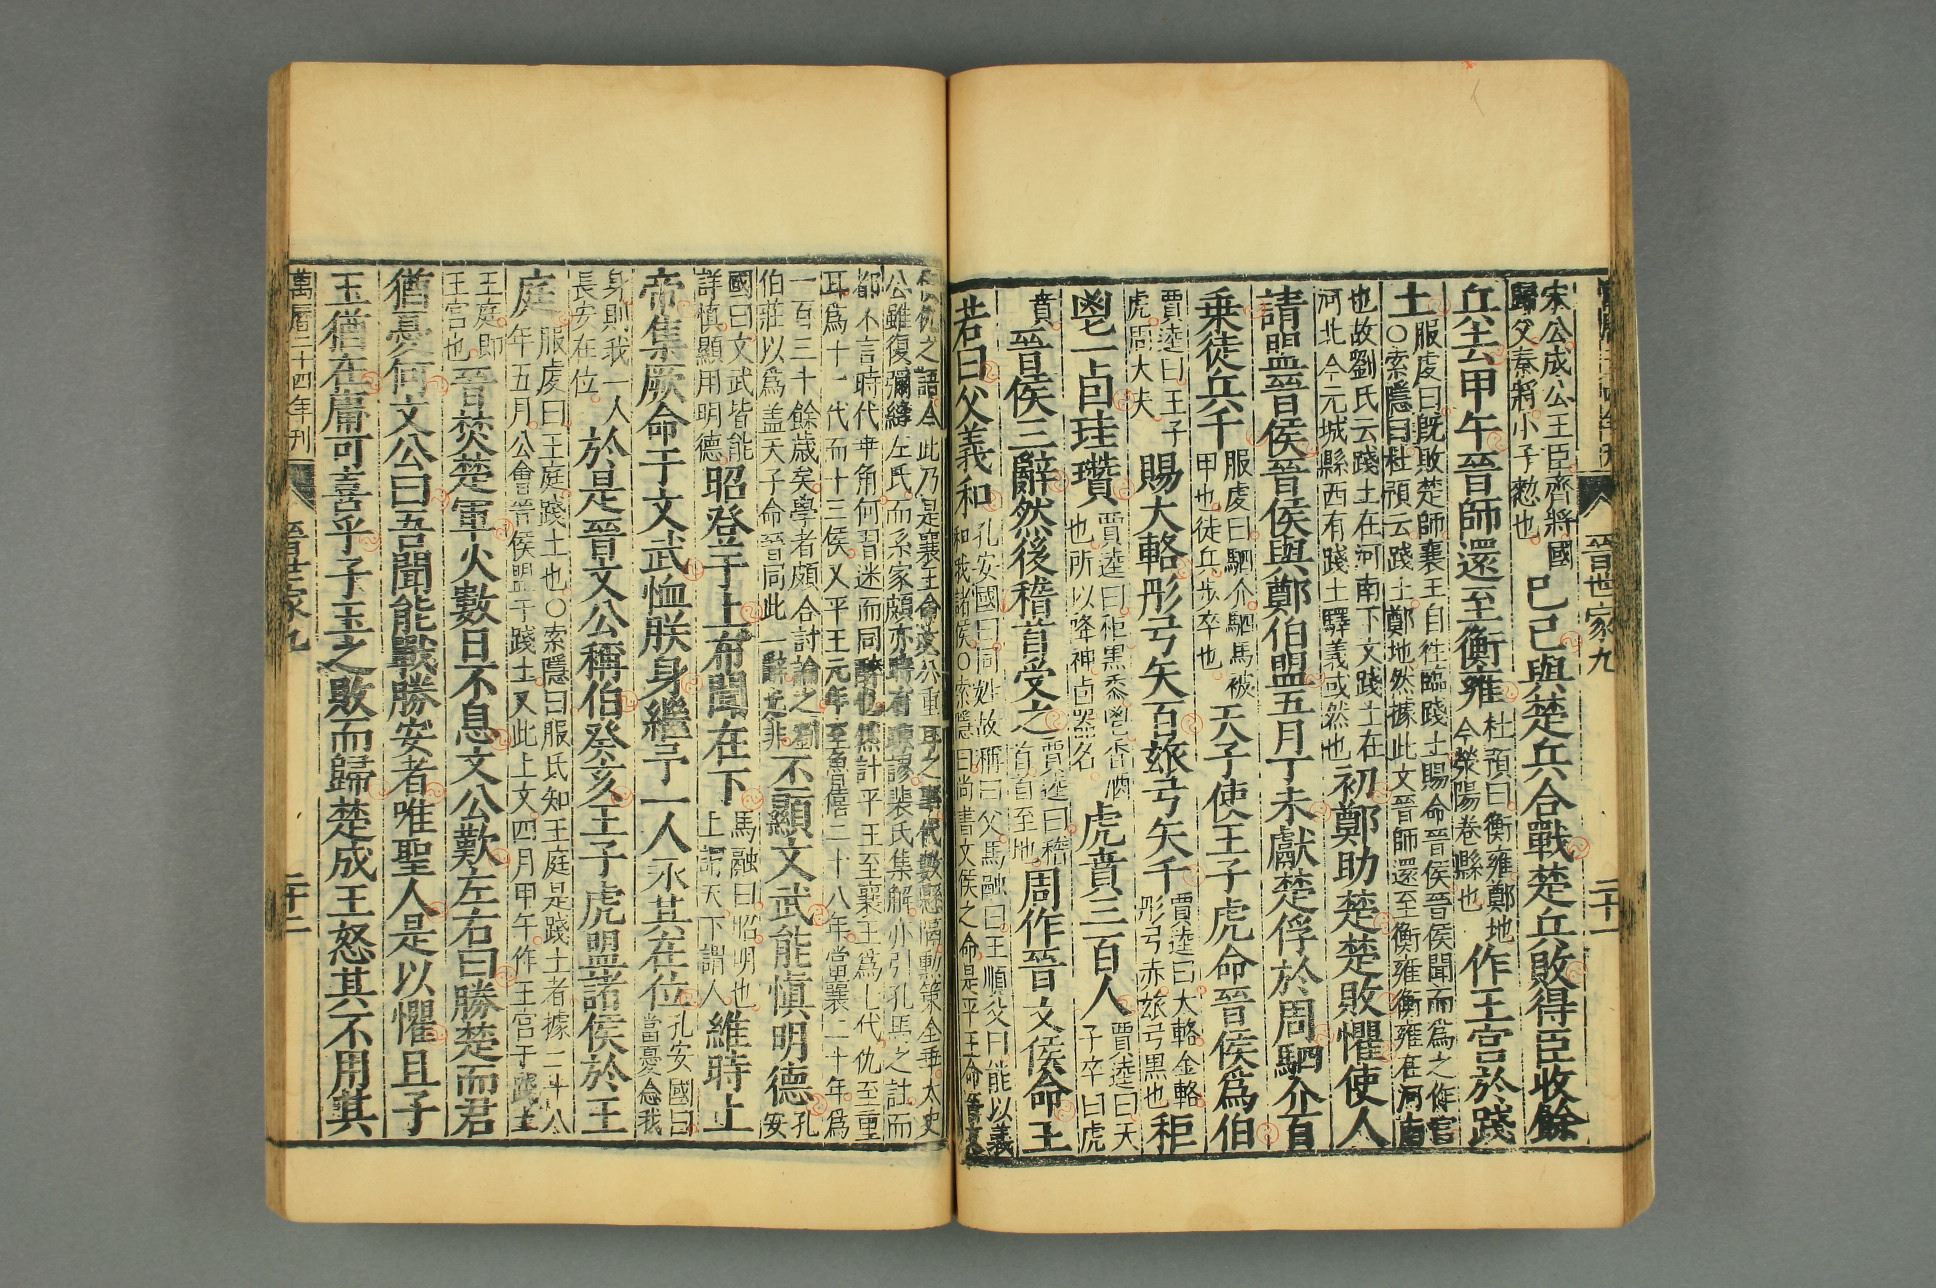 晉世家九 二十一
宋公成公王臣齊將國歸父秦將小子憖也己巳與楚兵合戰楚兵敗得臣收餘
兵去甲午晉師還至衡雍杜預曰衡雍鄭地今滎陽卷縣也作王宮於踐
土服虔曰旣敗楚師襄王自往臨踐土賜命晉侯晉侯聞而爲之作宮○索隱曰杜預云踐土鄭地然據此文晉師還至衡雍衡雍在河南
也故劉氏云踐土在河南下文踐土在河北今元城縣西有踐土驛義或然也初鄭助楚楚敗懼使人
請盟晉侯晉侯與鄭伯盟五月丁未獻楚俘於周駟介百
乗徒兵千服虔曰駟介駟馬被甲也徒兵步卒也天子使王子虎命晉侯爲伯
賈逵曰王子虎周大夫賜大輅彤弓矢百玈弓矢千賈逵曰大輅金輅彤弓赤玈弓黑也秬
鬯一卣珪瓚賈逵曰秬黑黍鬯香酒也所以降神卣器名虎賁三百人賈逵曰天子卒曰虎
賁晉侯三辭然後稽首受之賈逵曰稽首首至地周作晉文侯命王
若曰父義和孔安國曰同姓故稱曰父馬融曰王順父曰能以義和我諸侯○索隱曰尚書文侯之命是平王命晉文
侯仇之語今此乃是襄王命文公重耳之事代數懸隔勲策全乖太史
公雖復彌縫左氏而系家頗亦時有疎謬裴氏集解亦引孔馬之註而
都不言時代乖角何習迷而同醉也然計平王至襄王爲七代仇至重
耳爲十一代而十三侯又平王元年至魯僖二十八年當襄二十年爲
一百三十餘歲矣學者頗合討論之劉伯莊以爲蓋天子命晉同此一辭尤非丕顯文武能慎明德孔安
國曰文武皆能詳慎顯用明德昭登于上布聞在下馬融曰昭明也上謂天下謂人維時上
帝集厥命于文武恤朕身繼予一人永其在位孔安國曰當憂念我
身則我一人長安在位於是晉文公稱伯癸亥王子虎盟諸侯於王
庭服虔曰王庭踐土也○索隱曰服氏知王庭是踐土者據二十八年五月公會晉侯盟于踐土又此上文四月甲午作王宮于踐土
王庭即王宮也晉焚楚軍火數日不息文公歎左右曰勝楚而君
猶憂何文公曰吾聞能戰勝安者唯聖人是以懼且子
玉猶在庸可喜乎子玉之敗而歸楚成王怒其不用其
萬曆二十四年刊 晉世家九 二十二